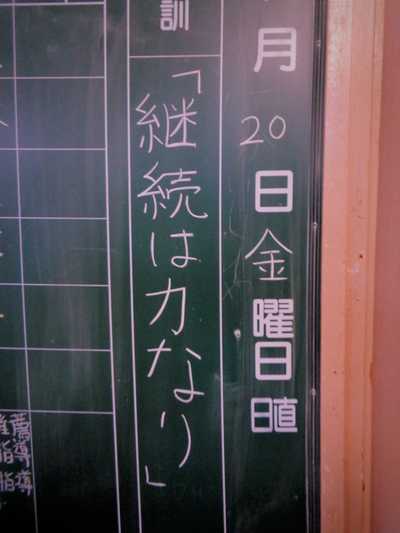 月20日金曜日日直
訓「継続は力なり」
推薦
指導
指導